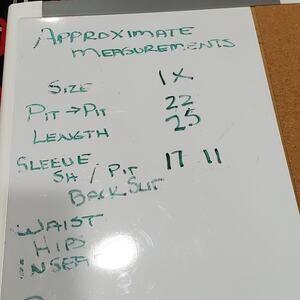 Approximate
Measurements
Size 1X
Pit → Pit 22
Length 25
Sleeve 17 11
Sh / Pit
Back Slit
Waist
Hips